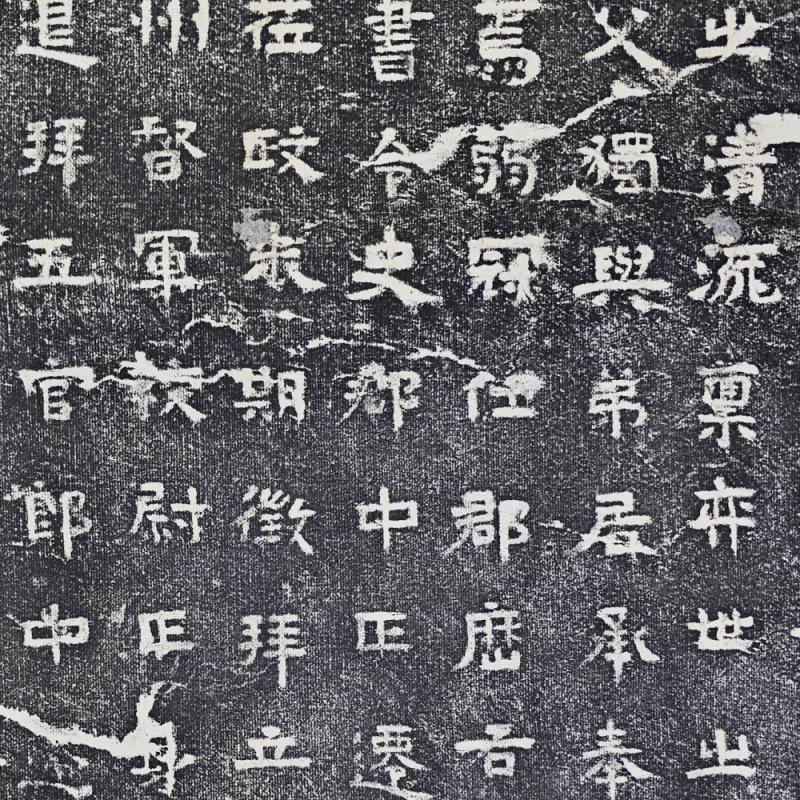 之清流稟弈世之
父獨與弟居承奉
焉弱冠仕郡歷右
書令史郡中正遷
莅政未期徵拜立
州督軍校尉正身
道拜五官郎中